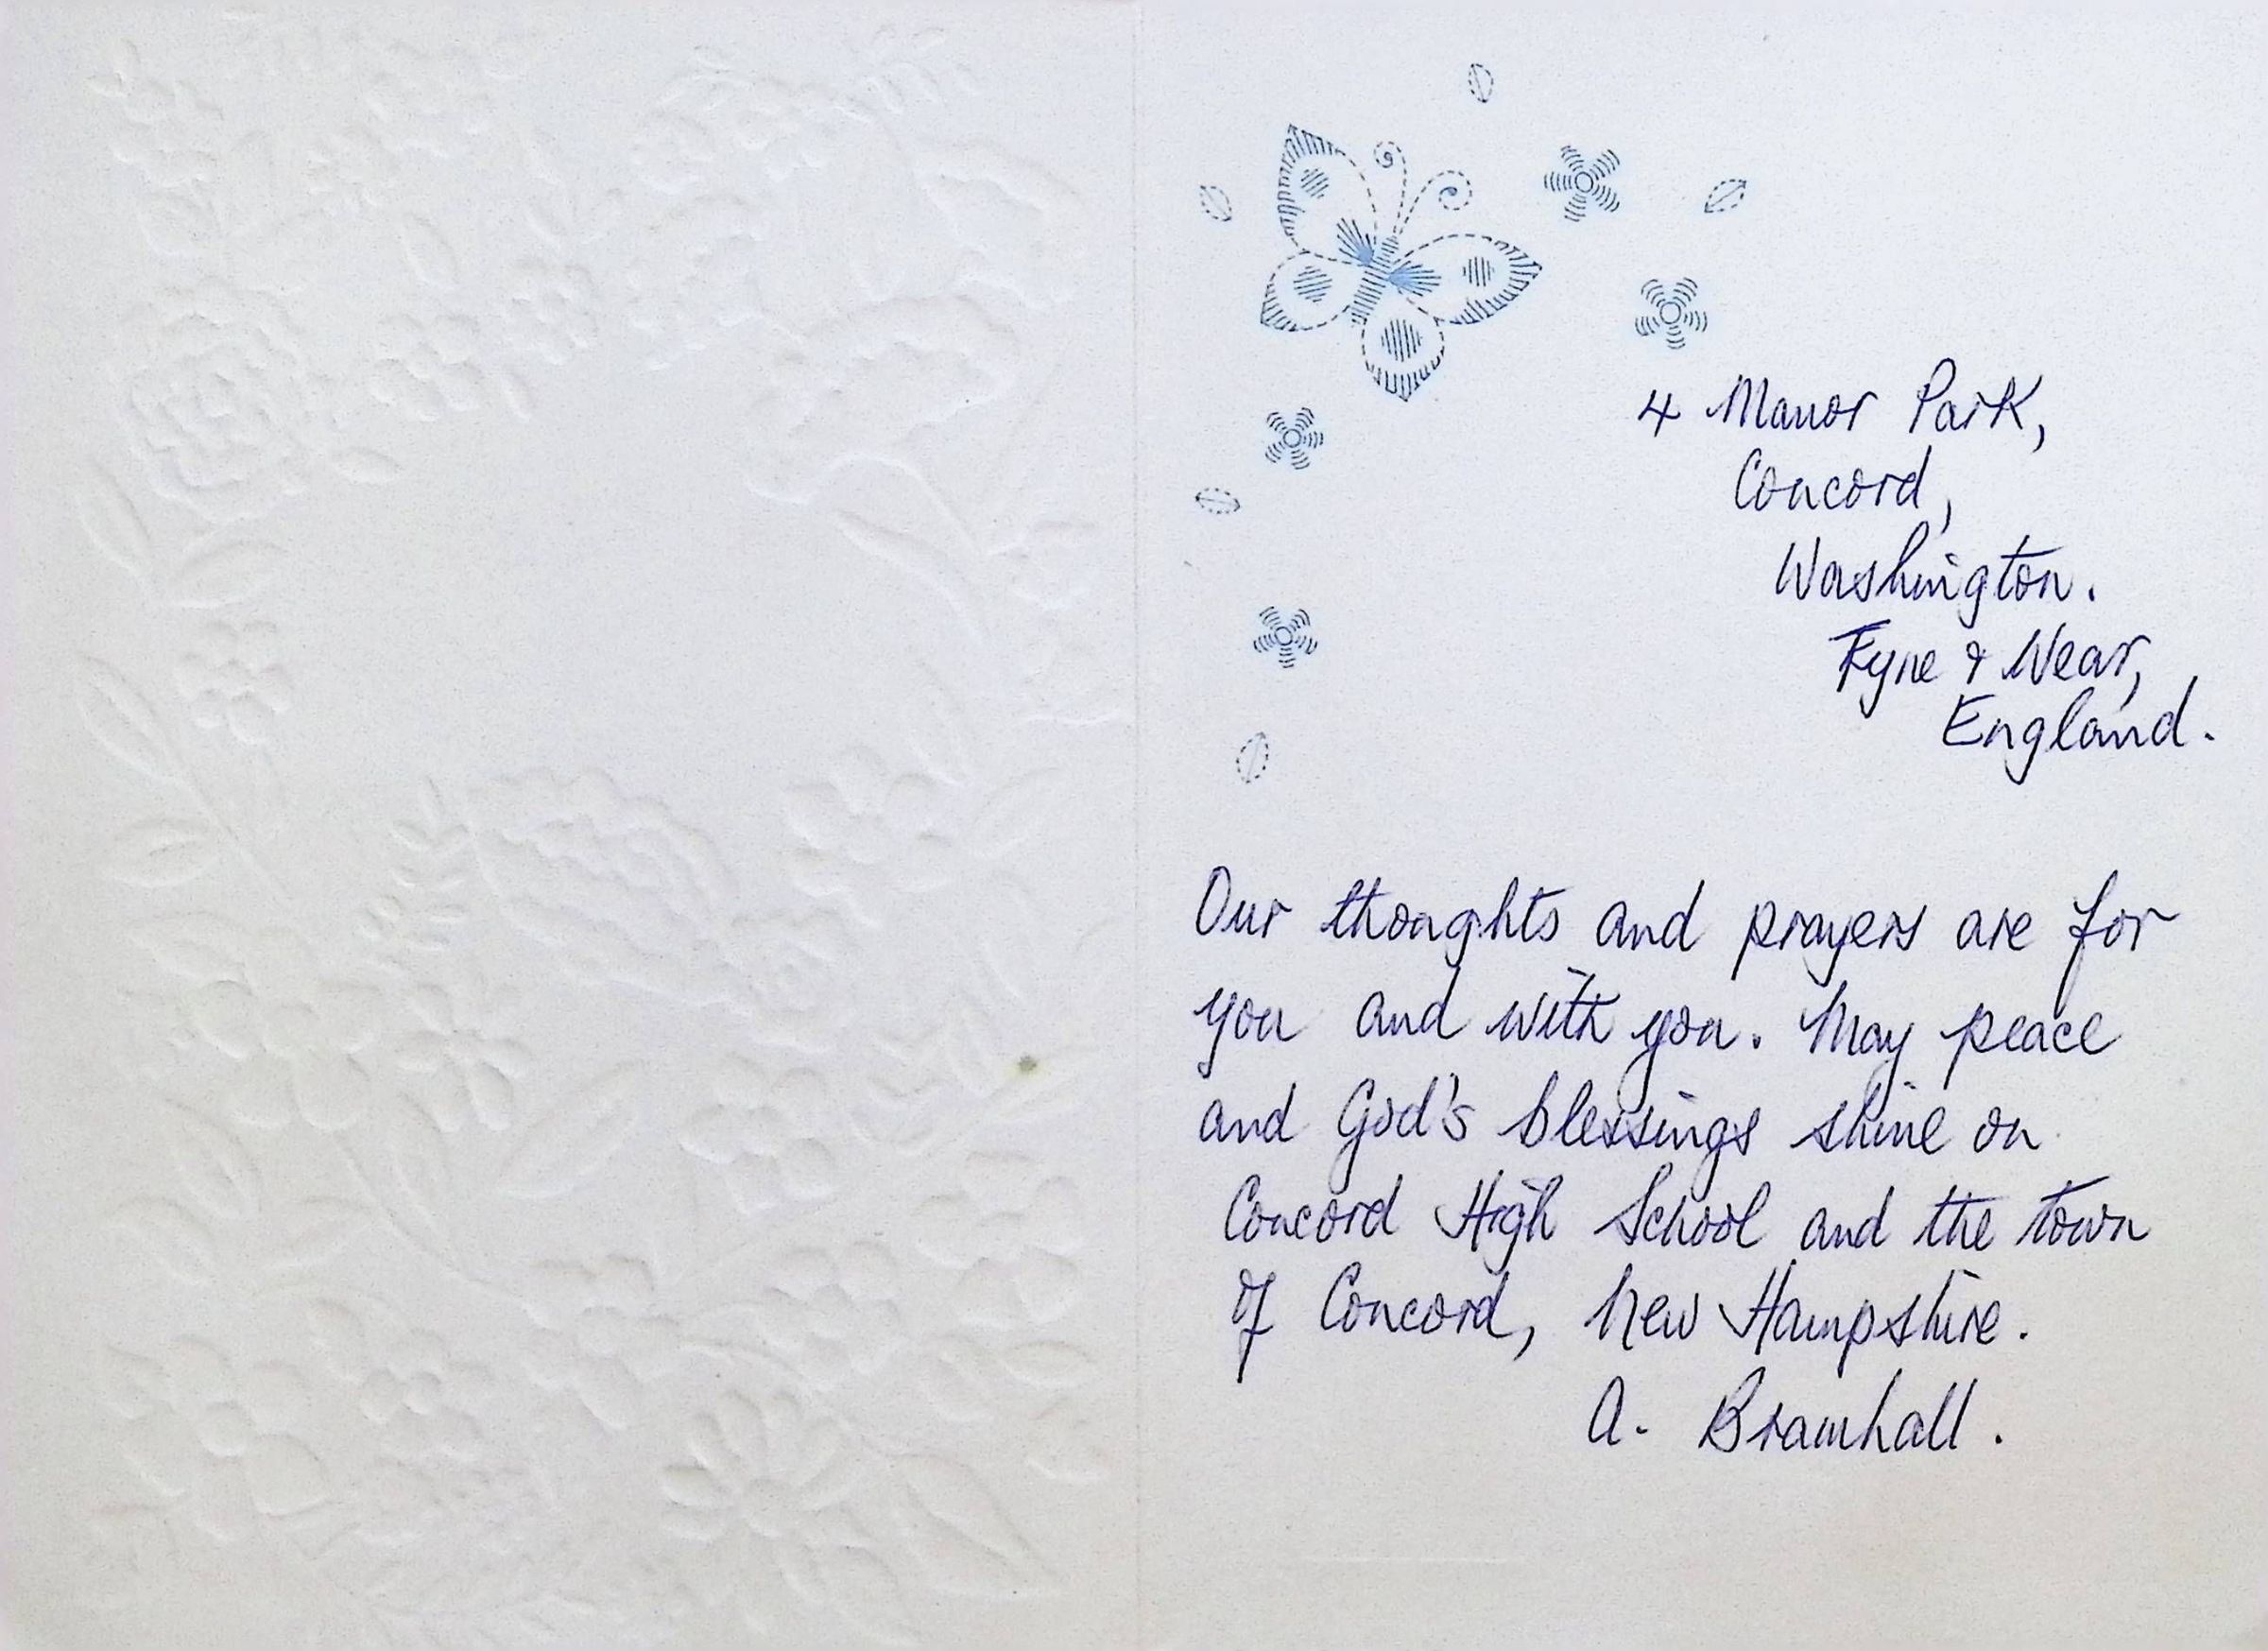 4 Manor Park,
Concord,
Washington.
Tyne & Wear,
England.
Our thoughts and prayers are for
you and with you. May peace
and God's blessings shine on
Concord High School and the town
of Concord, New Hampshire.
A. Bramhall.